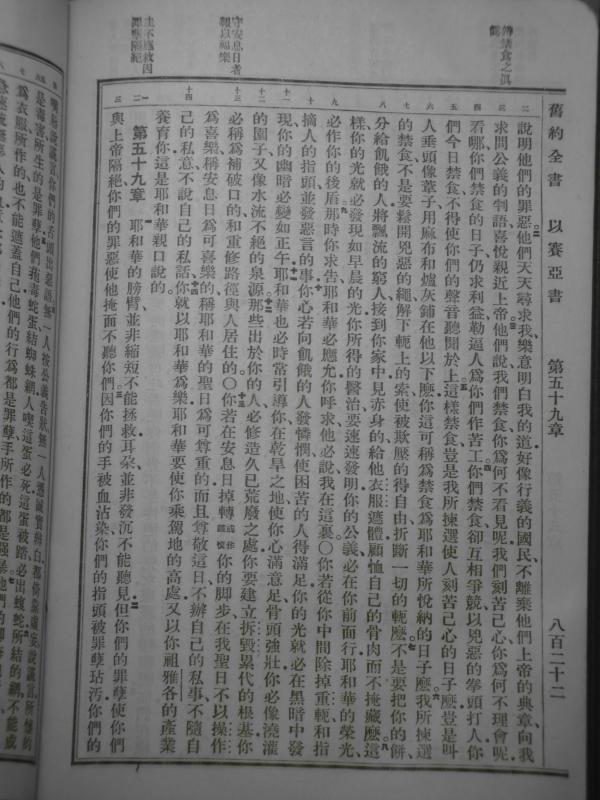 舊約全書 以賽亞書 第五十九章 八百二十二
二 說明他們的罪惡他們天天尋求我樂意明白我的道好像行義的國民不離棄他們上帝的典章向我
三 求問公義的判語喜悅親近上帝他們說我們禁食你爲何不看見呢我們刻苦己心你爲何不理會呢
四 看哪你們禁食的日子仍求利益勒逼人爲你們作苦工你們禁食卻互相爭競以兇惡的拳頭打人你
五 們今日禁食不得使你們的聲音聽聞於上這樣禁食豈是我所揀選使人刻苦己心的日子麽豈是叫
六 人垂頭像葦子用麻布和爐灰鋪在他以下麽你這可稱爲禁食爲耶和華所悅納的日子麽我所揀選
七 的禁食不是要鬆開兇惡的繩解下軛上的索使被欺壓的得自由折斷一切的軛麽不是要把你的餅
八 分給飢餓的人將飄流的窮人接到你家中見赤身的給他衣服遮體顧恤自己的骨肉而不掩藏麽這
樣你的光就必發現如早晨的光你所得的醫治要速速發明你的公義必在你前面行耶和華的榮光
九 必作你的後盾那時你求告耶和華必應允你呼求他必說我在這裏○你若從你中間除掉重軛和指
十 摘人的指頭並發惡言的事你心若向飢餓的人發憐憫使困苦的人得滿足你的光就必在黑暗中發
十一 現你的幽暗必變如正午耶和華也必時常引導你在乾旱之地使你心滿意足骨頭強壯你必像澆灌
十二 的園子又像水流不絕的泉源那些出於你的人必修造久已荒廢之處你要建立拆毀累代的根基你
十三 必稱爲補破口的和重修路徑與人居住的○你若在安息日掉轉或作謹慎你的脚步在我聖日不以操作
爲喜樂稱安息日爲可喜樂的稱耶和華的聖日爲可尊重的而且尊敬這日不辦自己的私事不隨自
十四 己的私意不說自己的私話你就以耶和華爲樂耶和華要使你乘駕地的高處又以你祖雅各的產業
養育你這是耶和華親口說的
一二 第五十九章 耶和華的膀臂並非縮短不能拯救耳朵並非發沉不能聽見但你們的罪孽使你們
三 與上帝隔絕你們的罪惡使他掩面不聽你們因你們的手被血沾染你們的指頭被罪孽玷污你們的
守安息日者報以福樂
主不應救因罪孽隔絕
一人按公義告狀無一人憑誠實辯白都倚靠虛妄說謊言所懷的
是毒害所生的是罪孽他們菢毒蛇蛋結蜘蛛網人喫這蛋必死這蛋被踏必出蝮蛇所結的網不能成
爲衣服所作的也不能遮蓋自己他們的行爲都是罪孽手所作的都是強暴